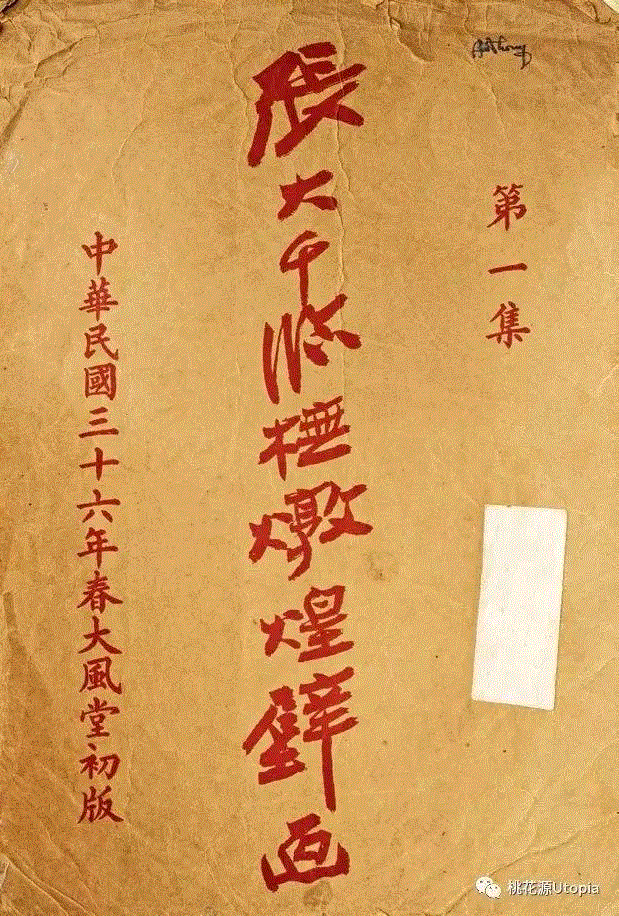 Anthony
第一集
張大千臨橅燉煌壁画
中華民國三十六年春大風堂初版
桃花源Utopia